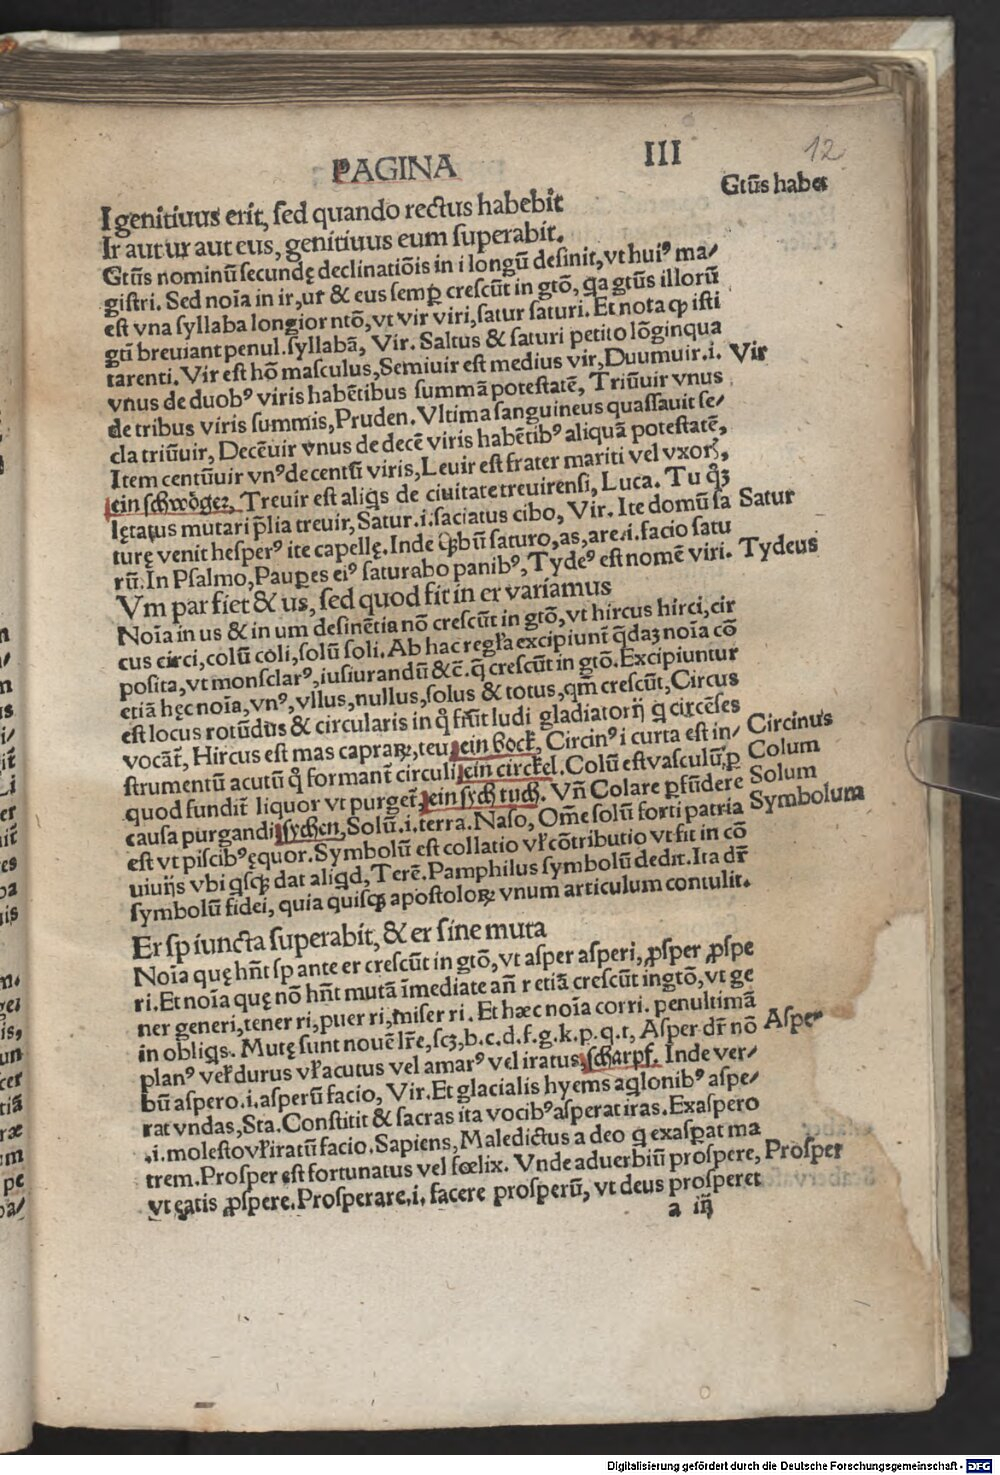 PAGINA III 12
Gtūs habet
I genitiuus erit, sed quando rectus habebit
Ir aut ur aut eus, genitiuus eum superabit.
Gtūs nominū secundę declinatiōis in i longū desinit, vt huiꝰ ma⸗
gistri. Sed noīa in ir, ur & eus semꝑ crescūt in gtō, qa gtūs illorū
est vna syllaba longior ntō, vt vir viri, satur saturi. Et nota ꝙ isti
gtī breuiant penul. syllabā, Vir. Saltus & saturi petito lōginqua
tarenti. Vir est hō masculus, Semiuir est medius vir, Duumuir .i. Vir
vnus de duobꝰ viris habētibus summā potestatē, Triūuir vnus
de tribus viris summis, Pruden. Vltima sanguineus quassauit se⸗
cla triūuir, Decēuir vnus de decē viris habētibꝰ aliquā potestatē,
Item centūuir vnꝰ de centū viris, Leuir est frater mariti vel vxorꝭ,
ein schwöger, Treuir est aliqs de ciuitate treuirensi, Luca. Tu qꝫ
lętatus mutari p̄lia treuir, Satur .i. saciatus cibo, Vir. Ite domū sa Satur
turę venit hesperꝰ ite capellę. Inde ꝟbū saturo, as, are .i. facio satu
rū. In Psalmo, Pauꝑes eiꝰ saturabo panibꝰ, Tydeꝰ est nomē viri. Tydeus
Vm par fiet & us, sed quod fit in er variamus
Noīa in us & in um desinētia nō crescūt in gtō, vt hircus hirci, cir
cus circi, colū coli, solū soli. Ab hac regła excipiunt̄ qdaꝫ noīa cō
posita, vt mons clarꝰ, iusiurandū &c̄. q̄ crescūt in gtō. Excipiuntur
etiā hęc noīa, vnꝰ, vllus, nullus, solus & totus, qm̄ crescūt, Circus
est locus rotūdus & circularis in q̊ fiūt ludi gladiatorij q circēses
vocāt̄, Hircus est mas caprarꝝ, teu. ein bock, Circinꝰ i curta est in⸗ Circinus
strumentū acutū q̊ formant̄ circuli ein circkel. Colū est vasculū, ꝑ Colum
quod fundit̄ liquor vt purget̄, ein sych tuch. Vn̄ Colare ꝑfūdere Solum
causa purgandi sychen, Solū .i. terra. Naso, Om̄e solū forti patria Symbolum
est vt piscibꝰ ęquor. Symbolū est collatio vł cōtributio vt fit in cō
uiuijs vbi qsqꝫ dat aliqd, Terē. Pamphilus symbolū dedit. Ita dr̄
symbolū fidei, quia quisqꝫ apostolorꝝ vnum articulum contulit.
Er sp iuncta superabit, & er sine muta
Noīa quę hn̄t sp ante er crescūt in gtō, vt asper asperi, ꝓsper ꝓspe
ri. Et noīa quę nō hn̄t mutā īmediate an̄ r etiā crescūt in gtō, vt ge
ner generi, tener ri, puer ri, miser ri. Et hæc noīa corri. penultimā
in obliqs. Mutę sunt nouē lr̄e, scꝫ, b.c.d.f.g.k.p.q.t, Asper dr̄ nō Asper
planꝰ veł durus vł acutus vel amarꝰ vel iratus, scharpf. Inde ver⸗
bū aspero .i. asperū facio, Vir. Et glacialis hyems aqlonibꝰ aspe⸗
rat vndas, Sta. Constitit & sacras ita vocibꝰ asperat iras. Exaspero
.i. molesto vł iratū facio. Sapiens, Maledictus a deo q exasꝑat ma
trem. Prosper est fortunatus vel fœlix. Vnde aduerbiū prospere, Prosper
vt eatis ꝓspere. Prosperare .i. facere prosperū, vt deus prosperet
a iij
Digitalisierung gefördert durch die Deutsche Forschungsgemeinschaft - DFG